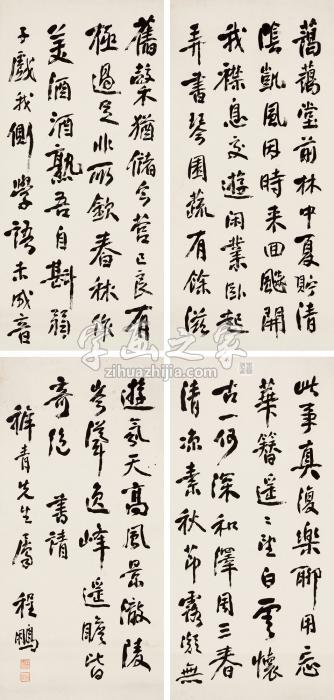 藹藹堂前林中夏貯清
陰凱風因時來回飈開
我襟息交遊閑業臥起
弄書琴園蔬有餘滋
舊榖猶儲今營己良有
極過足非所欽舂秫作
美酒酒熟吾自斟弱
子戲我側學語未成音
此事真復樂聊用忘
華簪遥〻望白雲懷
古一何深和澤周三春
清凉素秋節露凝無
遊氛天高風景澈陵
岑聳逸峰遥瞻皆
奇絶 書請
青先生屬 程鵬
字画之家
zihuazhijia.com